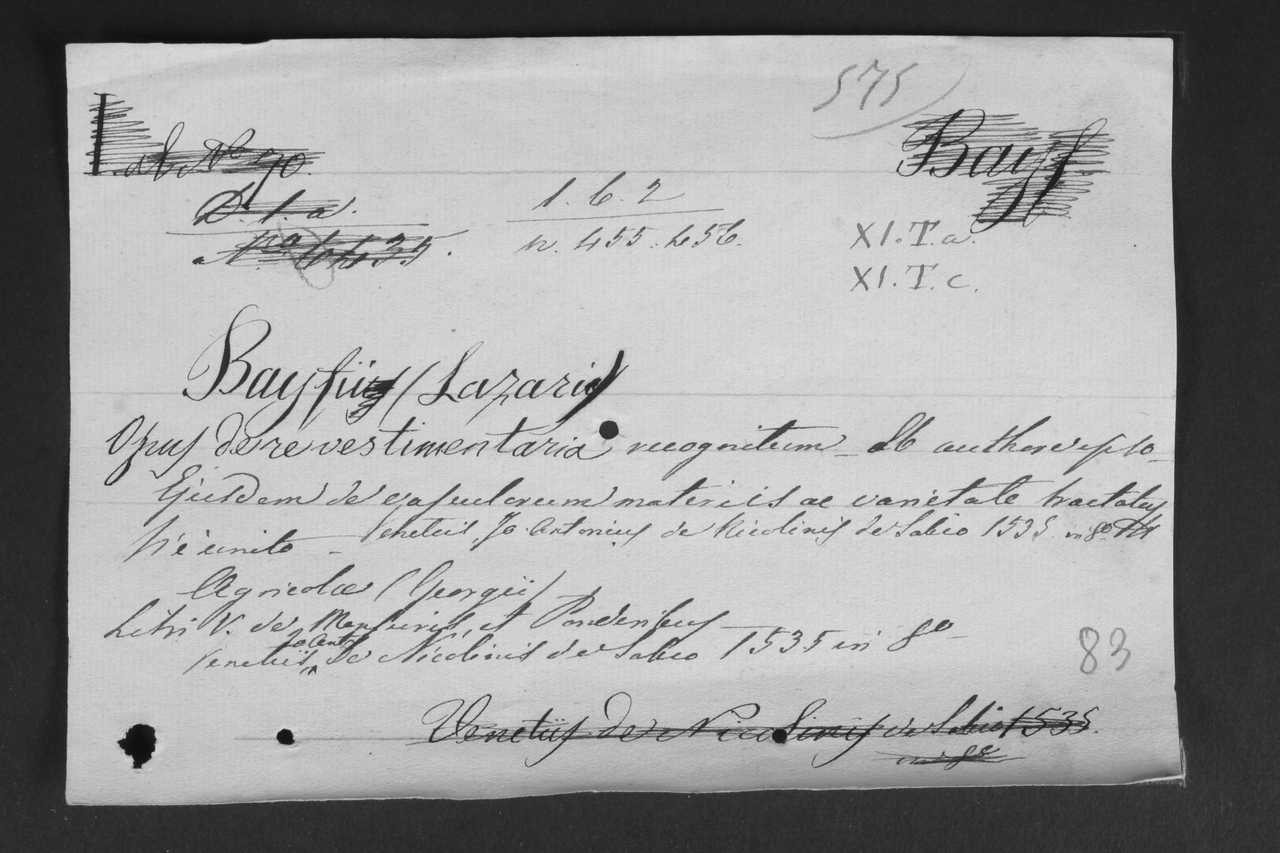 575
ab No 90.
Bayf
D. 1. a.
1. 6. 2
No 6435.
n. 455. 456.
XI. T. a.
XI. T. c.
Bayfii (Lazari)
Opus de re vestimentaria recognitum ab authore ipso
Ejusdem de vasculorum materiis ac varietate tractatus
V'è unito Venetiis Jo. Antonius de Nicolinis de Sabio 1535 in 8o
Agricolae (Georgii)
Libri V. de Mensuris, et Ponderibus
Venetiis Jo. Ant. de Nicolinis de Sabio 1535 in 8o
83
Venetiis de Nicolinis de Sabio 1535.
in 8o